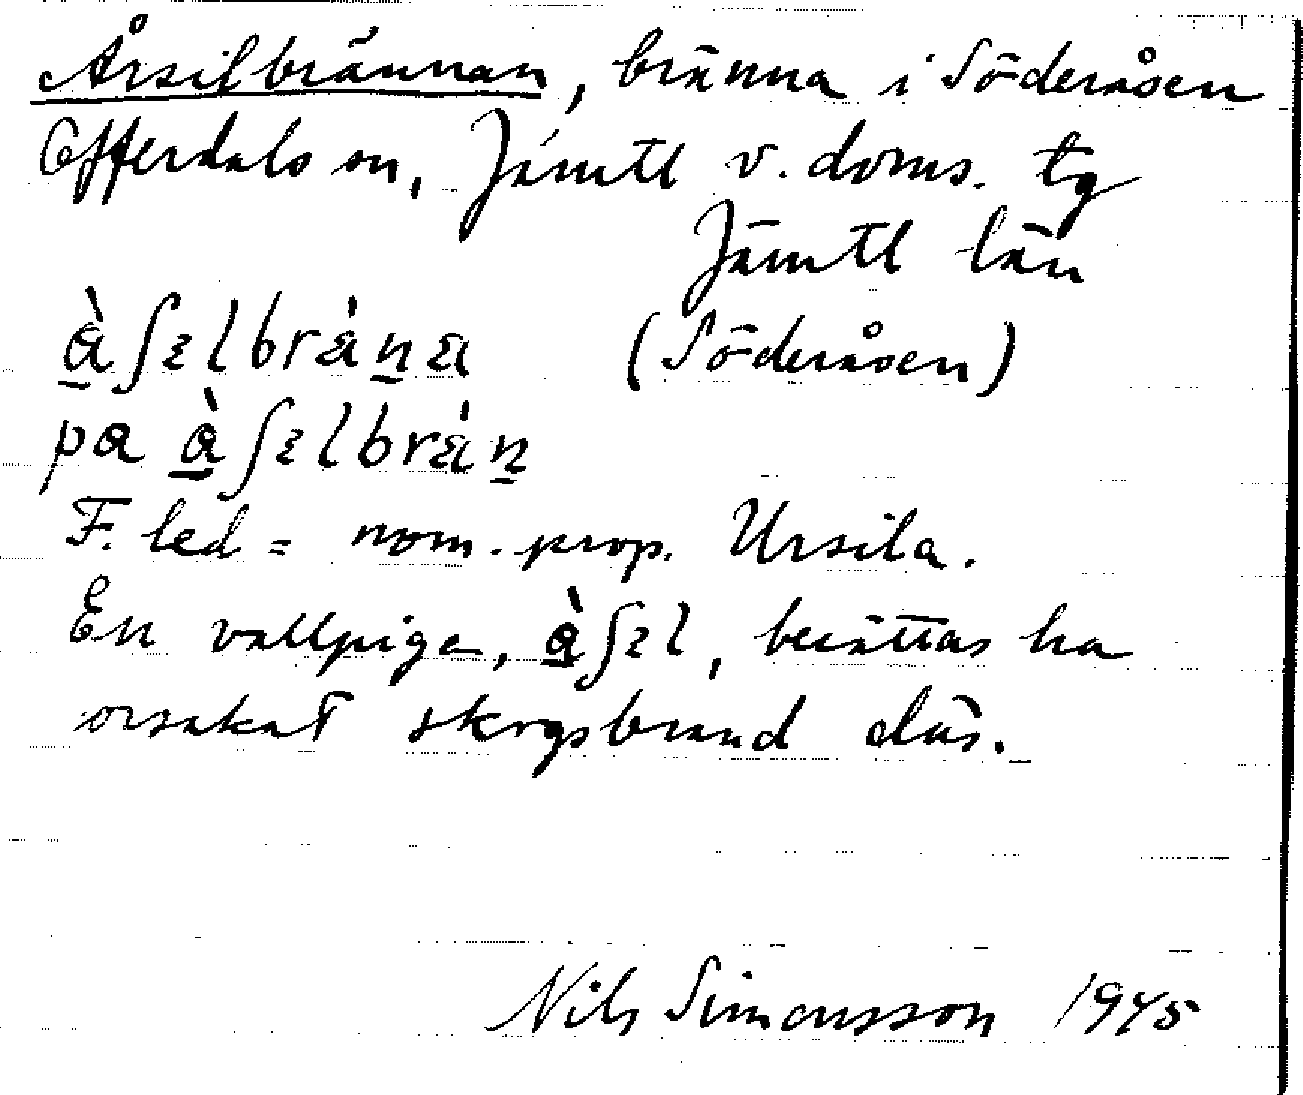 Årsilbrännan, bränna i Söderåsen
Offerdals sn, Jämtl v. doms. tg
Jämtl län
(Söderåsen)
F. led = nom. prop. Ursila.
En vallpiga, berättas ha
orsakat skogsbrand där.
Nils Simonsson 1945